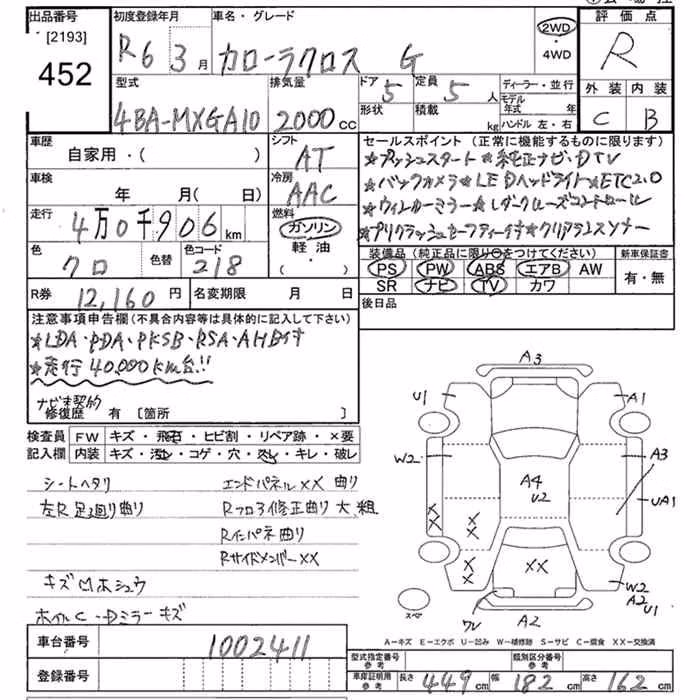 出品番号 初度登録年月 車名・グレード 2WD 評価点
[2193] R6 3月 カローラクロス G ・ R
452 4WD
型式 排気量 ドア 5 定員 5人 ディーラー・並行 外装 内装
4BA-MXGA10 2000cc 形状 積載 kg モデル年式 年 C B
ハンドル 左・右
車歴 シフト セールスポイント (正常に機能するものに限ります)
自家用・( ) AT ★プッシュスタート★純正ナビ・DTV
車検 冷房 ★バックカメラ★LEDヘッドライト★ETC2.0
年 月(日) AAC ★ウィンカーミラー★レダクルーズコントロール
走行 燃料 ★プリクラッシュセーフティ付★クリアランスソナー
4万0千906km ガソリン
色 色替 色コード 軽油 装備品 (純正品に限り○をつけてください) 新車保証書
クロ 218 ・( ) PS PW ABS エアB AW 有・無
SR ナビ TV カワ
R券 12,160円 名変期限 月 日 後日品
注意事項申告欄(不具合内容等は具体的に記入して下さい)
★LDA・PDA・PKSB・RSA・AHB付
★走行40,000km台!!
ナビ未契約
修復歴 有 [箇所 ]
検査員 FW キズ・飛石・ヒビ割・リペア跡・×要
記入欄 内装 キズ・汚レ・コゲ・穴・スレ・キレ・破レ
シートヘタリ エンドパネル××曲り
左R足廻り曲り Rフロア修正曲り大、組
Rインパネ曲り
RサイドメンバーXX
キズMホシュウ
ホイルC-Dミラーキズ
A3
U1 A1
W2 A3
A4
U2
UA1
× × ×
× × ××
W2
A2
U1
スペア
W
A2
A—キズ E—エクボ U—凹み W—補修跡 S—サビ C—腐食 XX—交換済
車台番号 1002411
型式指定番号 参考 類別区分番号 参考
登録番号 車庫証明用 参考 長さ 449cm 幅 182cm 高さ 162cm